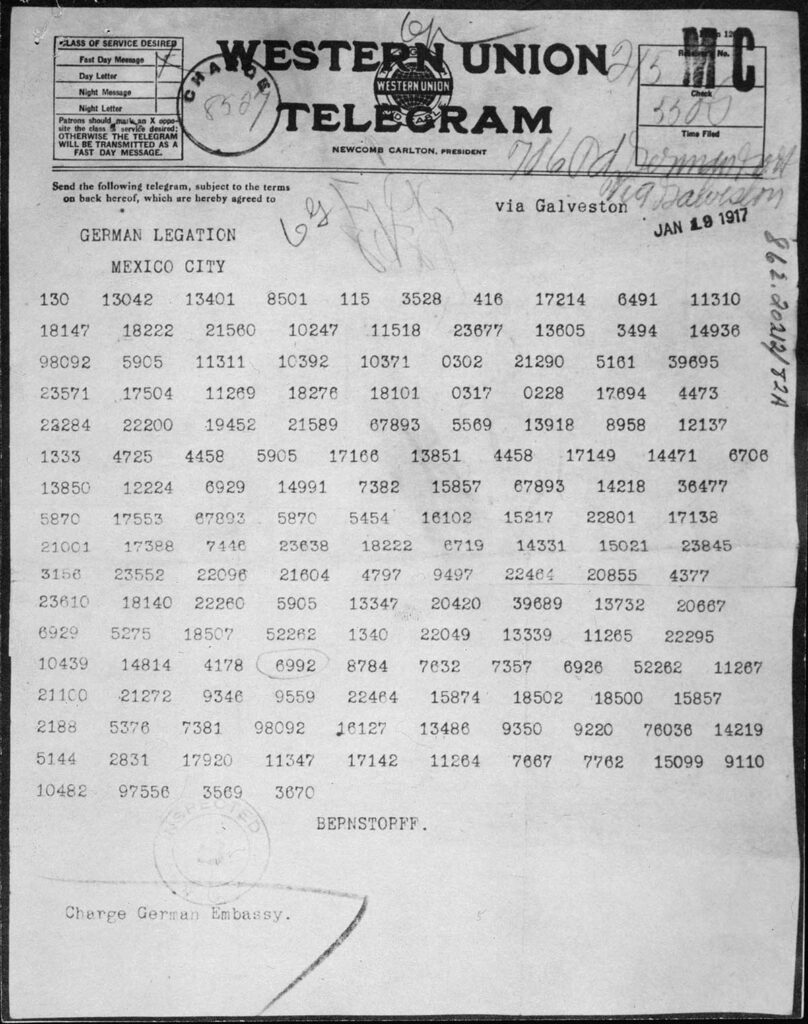 CLASS OF SERVICE DESIRED
Fast Day Message
Day Letter
Night Message
Night Letter
Patrons should mark an X oppo-
site the class of service desired;
OTHERWISE THE TELEGRAM
WILL BE TRANSMITTED AS A
FAST DAY MESSAGE.
CHARGE
WESTERN UNION
WESTERN UNION
TELEGRAM
NEWCOMB CARLTON, PRESIDENT
Receiver's No.
MC
Check
Time Filed
Send the following telegram, subject to the terms
on back hereof, which are hereby agreed to
via Galveston
Via Galveston
JAN 19 1917
GERMAN LEGATION
MEXICO CITY
862.20212/82A
130 13042 13401 8501 115 3528 416 17214 6491 11310
18147 18222 21560 10247 11518 23677 13605 3494 14936
98092 5905 11311 10392 10371 0302 21290 5161 39695
23571 17504 11269 18276 18101 0317 0228 17694 4473
22284 22200 19452 21589 67893 5569 13918 8958 12137
1333 4725 4458 5905 17166 13851 4458 17149 14471 6706
13850 12224 6929 14991 7382 15857 67893 14218 36477
5870 17553 67893 5870 5454 16102 15217 22801 17138
21001 17388 7446 23638 18222 6719 14331 15021 23845
3156 23552 22096 21604 4797 9497 22464 20855 4377
23610 18140 22260 5905 13347 20420 39689 13732 20667
6929 5275 18507 52262 1340 22049 13339 11265 22295
10439 14814 4178 6992 8784 7632 7357 6926 52262 11267
21100 21272 9346 9559 22464 15874 18502 18500 15857
2188 5376 7381 98092 16127 13486 9350 9220 76036 14219
5144 2831 17920 11347 17142 11264 7667 7762 15099 9110
10482 97556 3569 3670
BERNSTORFF.
INSPECTED
Charge German Embassy.